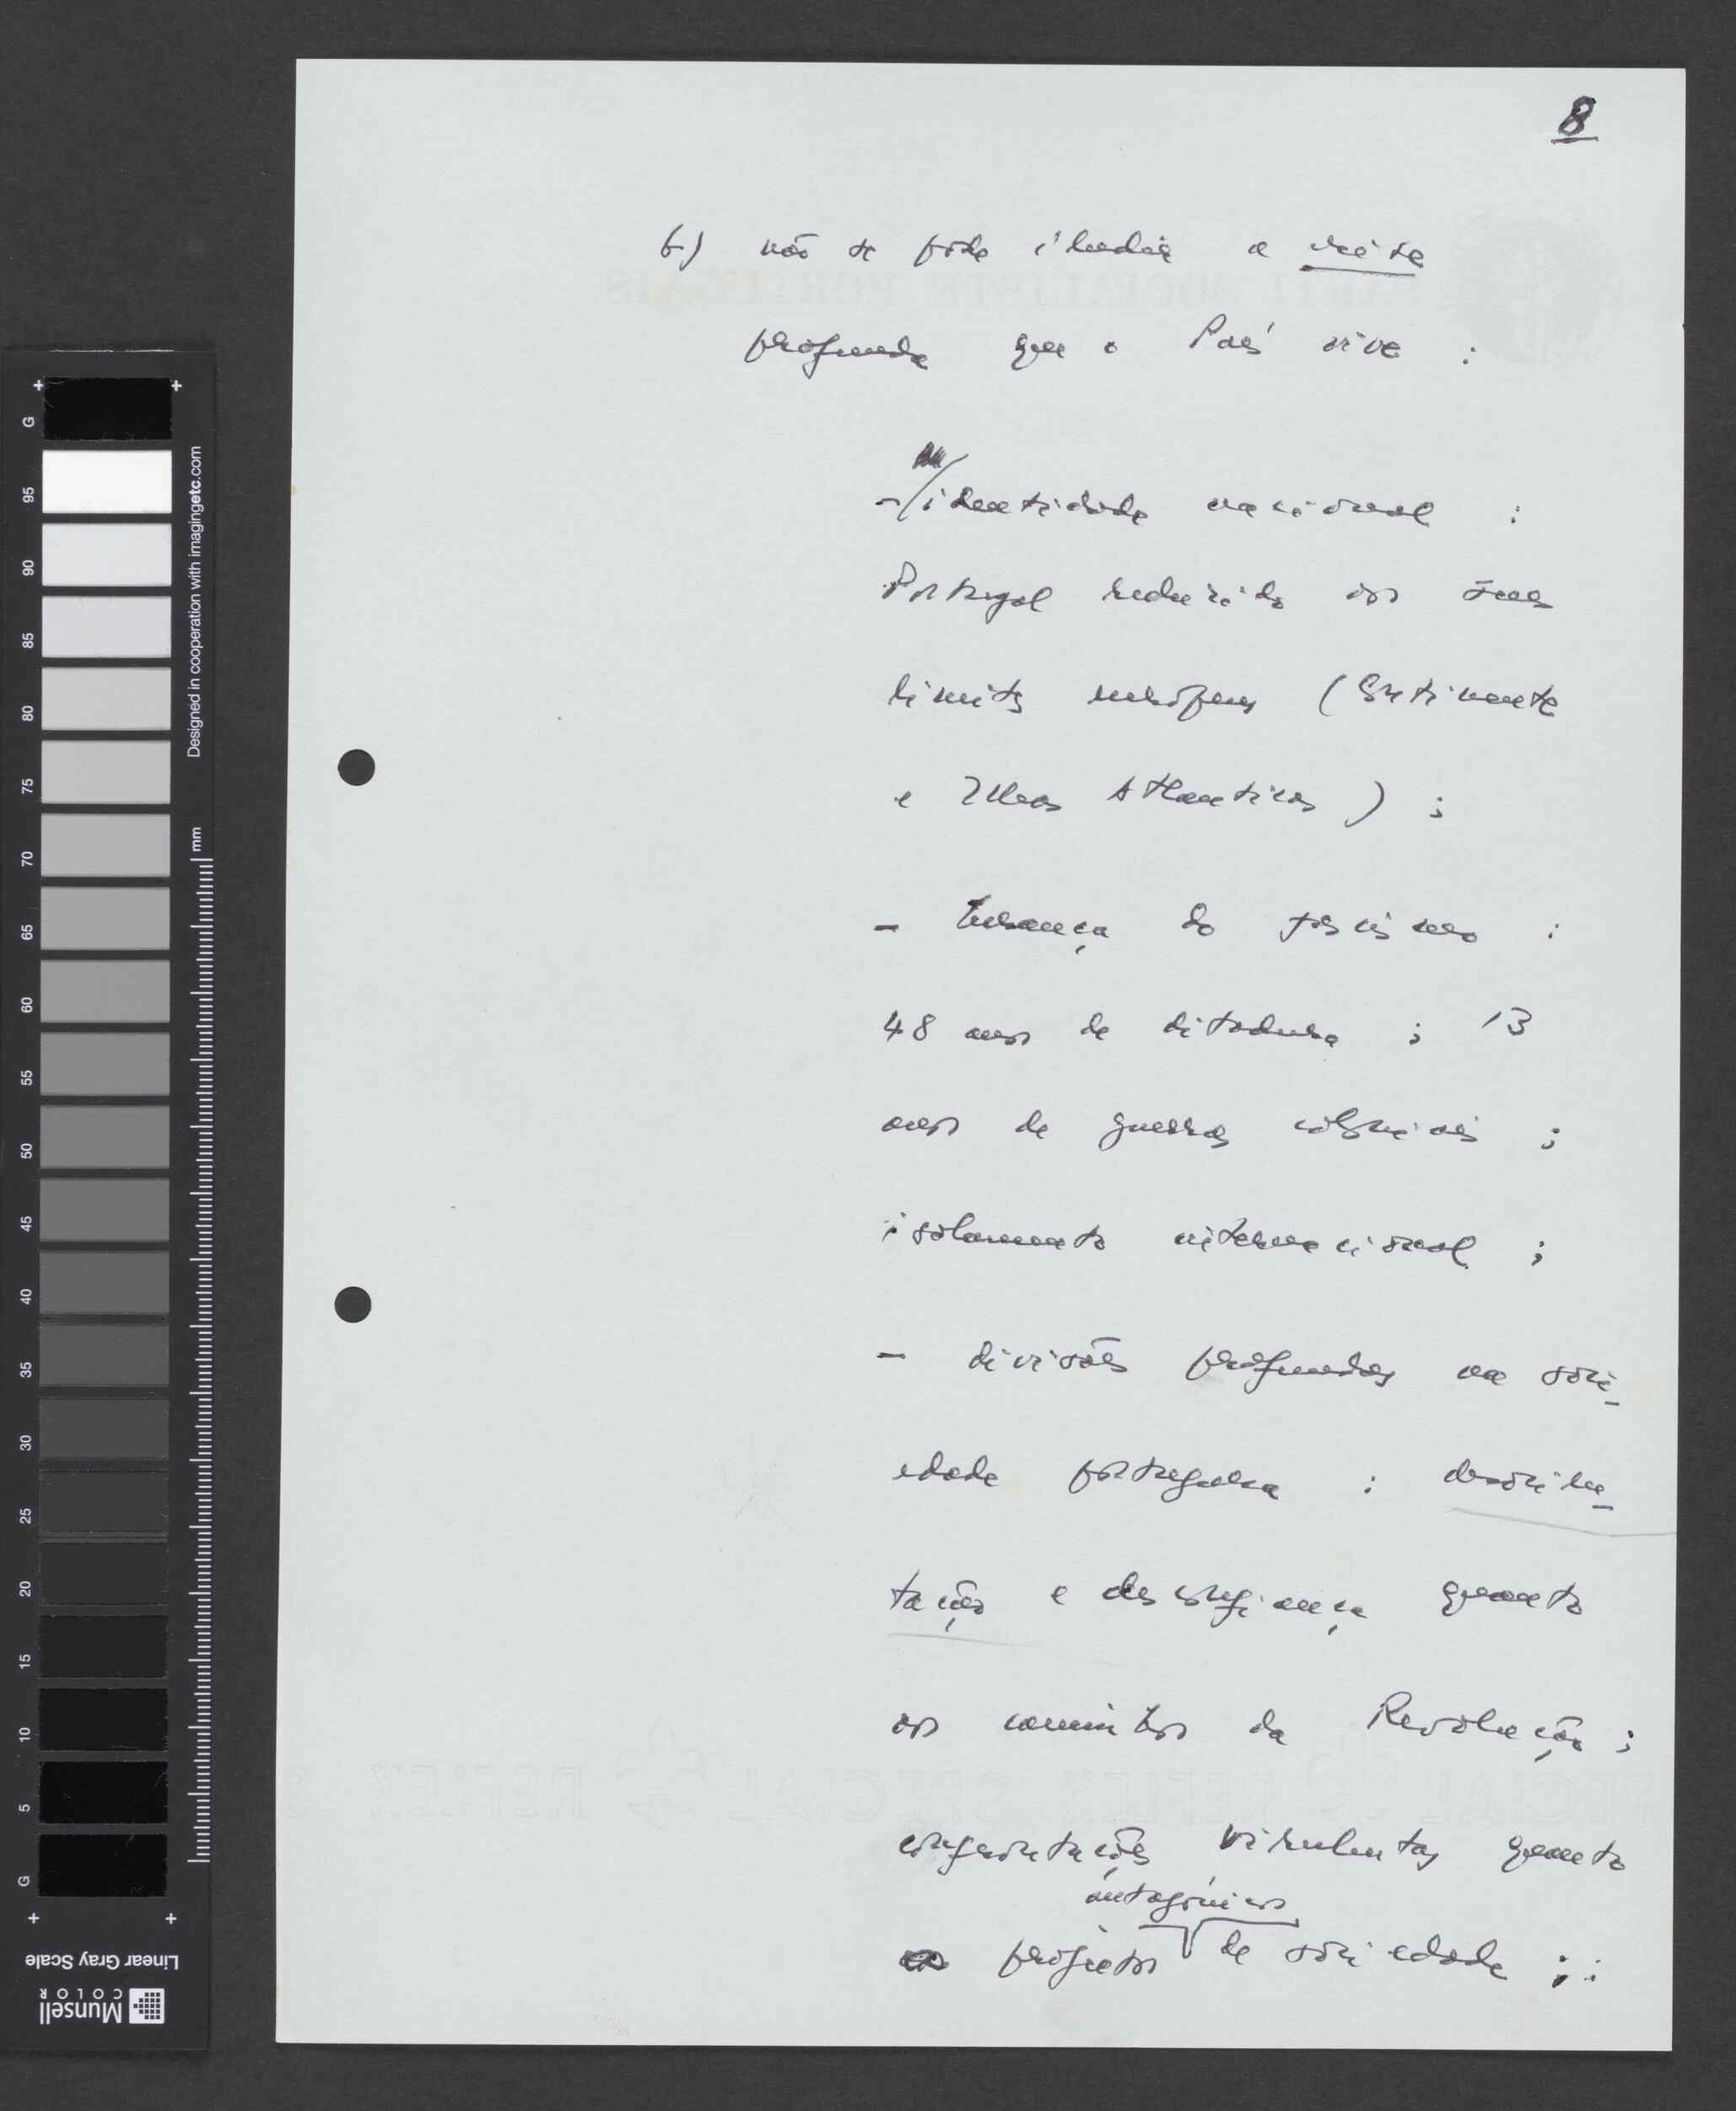 8
b) não se pode iludir a crise
profunda que o País vive :
- identidade nacional :
Portugal reduzido aos seus
limites europeus (Continente
e Ilhas Atlanticas) ;
- herança do fascismo :
48 anos de ditadura ; 13
anos de guerras coloniais ;
isolamento internacional ;
- divisões profundas na soci-
edade portuguesa : desorien-
tação e desconfiança quanto
aos caminhos da Revolução ;
confrontações virulentas quanto
antagónicos
projectos de sociedade ;
G 95 90 85 80 75 70 65 60 55 50 45 40 35 30 25 20 15 10 5 G
Designed in cooperation with imagingetc.com
mm
Linear Gray Scale
Munsell
COLOR